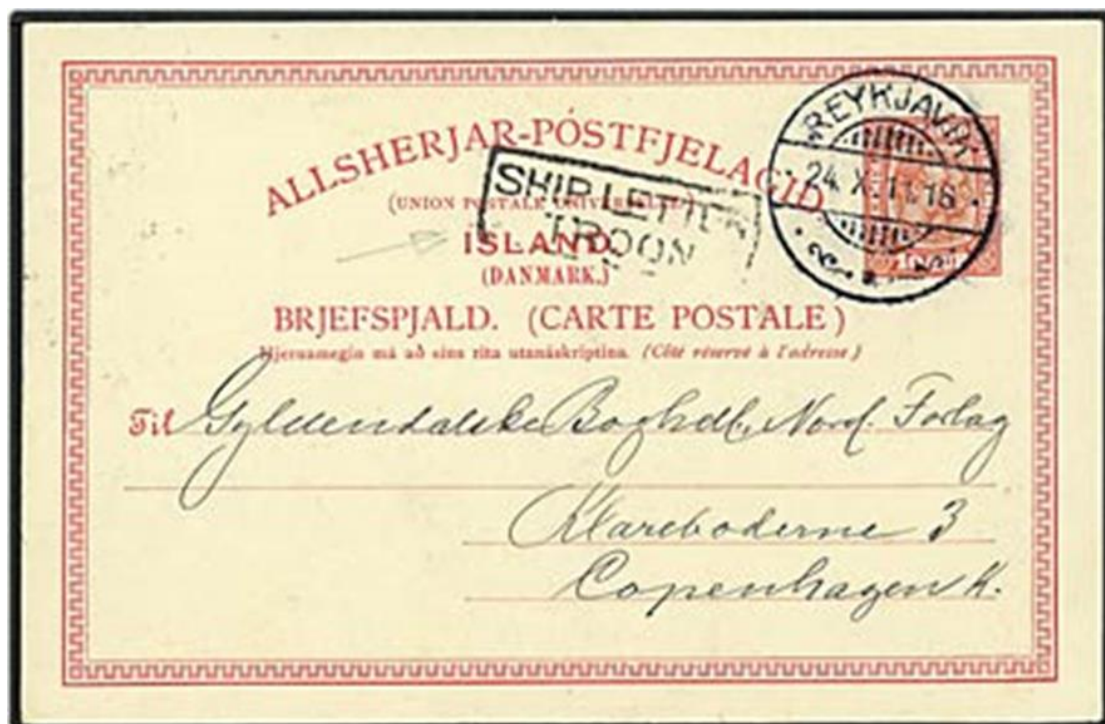 ALLSHERJAR-PÓSTFJELAGIÐ
(UNION POSTALE UNIVERSELLE)
ÍSLAND.
(DANMARK.)
SHIP LETTER
TROON
REYKJAVIK
24. X. 11. 18
BRJEFSPJALD. (CARTE POSTALE)
Hjernamegin má að eins rita utanáskriptina. (Côté réservé à l'adresse)
Til Gyldendalske Boghdl, Nord. Forlag
Klareboderne 3
Copenhagen K.